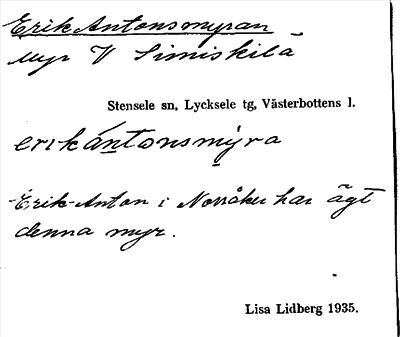 Erik Antonsmyran
Myr V Simiskilä
Stensele sn, Lycksele tg, Västerbottens l.
erikántonsmýra
Erik-Anton i Norråker har ägt
denna myr.
Lisa Lidberg 1935.